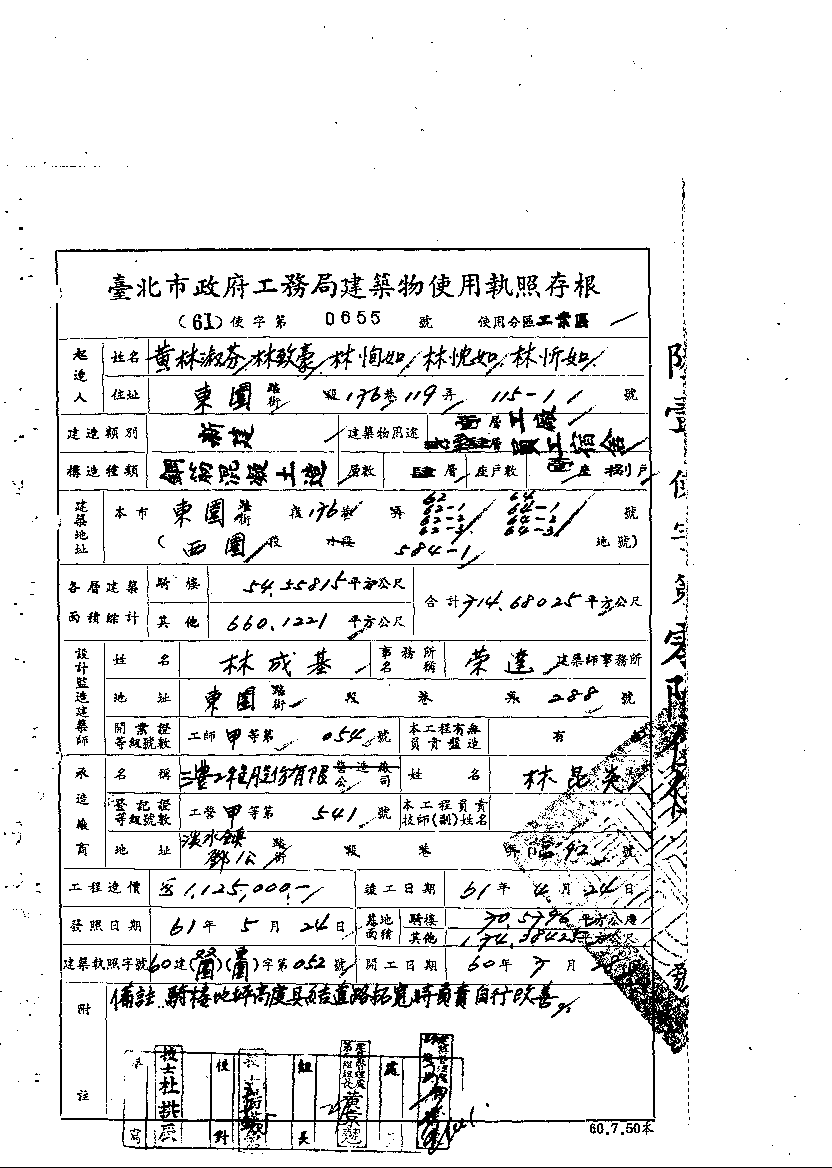 臺北市政府工務局建築物使用執照存根
(61)使字第 0655 號 使用分區工業區
起造人 姓名 黃林淑芬 林致豪 林恂如 林忱如 林忻如
住址 東園 路街 段 136巷 119弄 115-1 號
建造類別 新建 建築物用途 層工廠 層員工宿舍
構造種類 鋼筋混凝土造 層數 肆層 座戶數 座 捌戶
建築地址 本市 東園 路街 段 136巷 弄 62 62-1 62-2 62-3 64 64-1 64-2 64-3 號
(西園 段 小段 584-1 地號)
各層建築面積總計 騎樓 54.55815平方公尺 合計714.68025平方公尺
其他 660.1221 平方公尺
設計監造建築師 姓名 林成基 事務所名稱 榮達 建築師事務所
地址 東園 路街 段 巷 弄 288 號
開業證等級號數 工師 甲 等第 054 號 本工程有無負責監造 有
承造廠商 名稱 三豐工程股份有限 營造廠公司 姓名 林昆
登記證等級號數 工營 甲 等第 541 號 本工程負責技師(副)姓名
地址 淡水鎮 鄧公 路街 段 巷 弄 92 號
工程造價 1,125,000.- 竣工日期 61年 4月 24日
發照日期 61年 5月 24日 基地面積 騎樓 70.5796 平方公尺
其他 174.38425平方公尺
建築執照字號 60建( )( )字第052號 開工日期 60年 7月
附註 備註 騎樓地坪高度 道路拓寬時負責自行改善
技士杜
校對
組長
60.7.50本